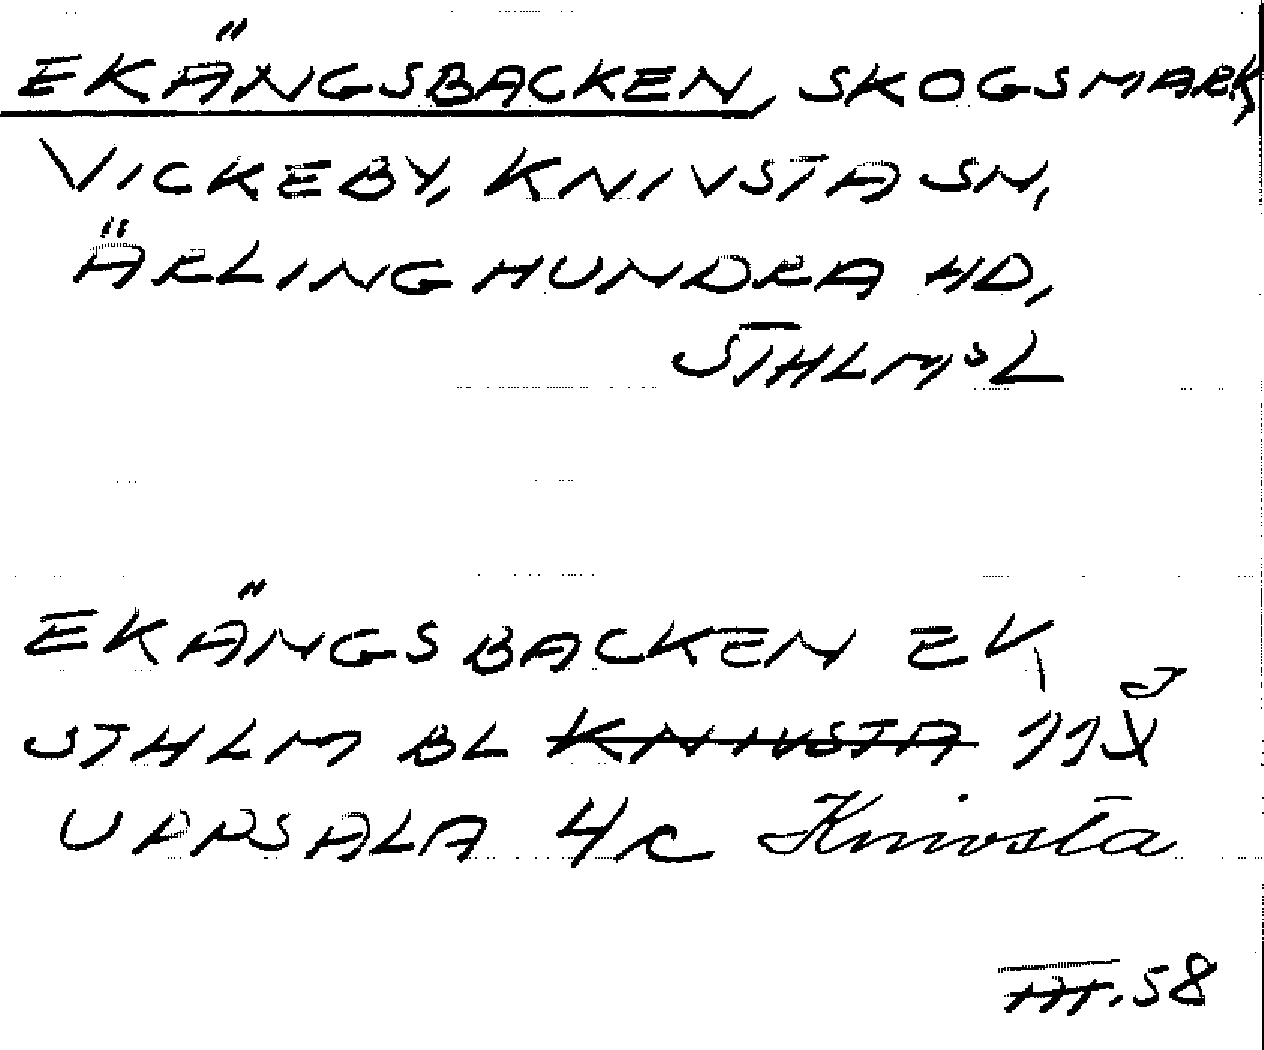 EKÄNGSBACKEN, SKOGSMARK,
VICKEBY, KNIVSTA SN,
ÄRLINGHUNDRA HD,
STHLMS L
EKÄNGSBACKEN EK
STHLM BL KNIVSTA 11
UPPSALA 4c Knivsta
.58